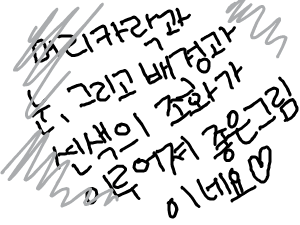 머리카락과
눈, 그리고 배경과
선색의 조화가
이루어져 좋은그림
이네요♡